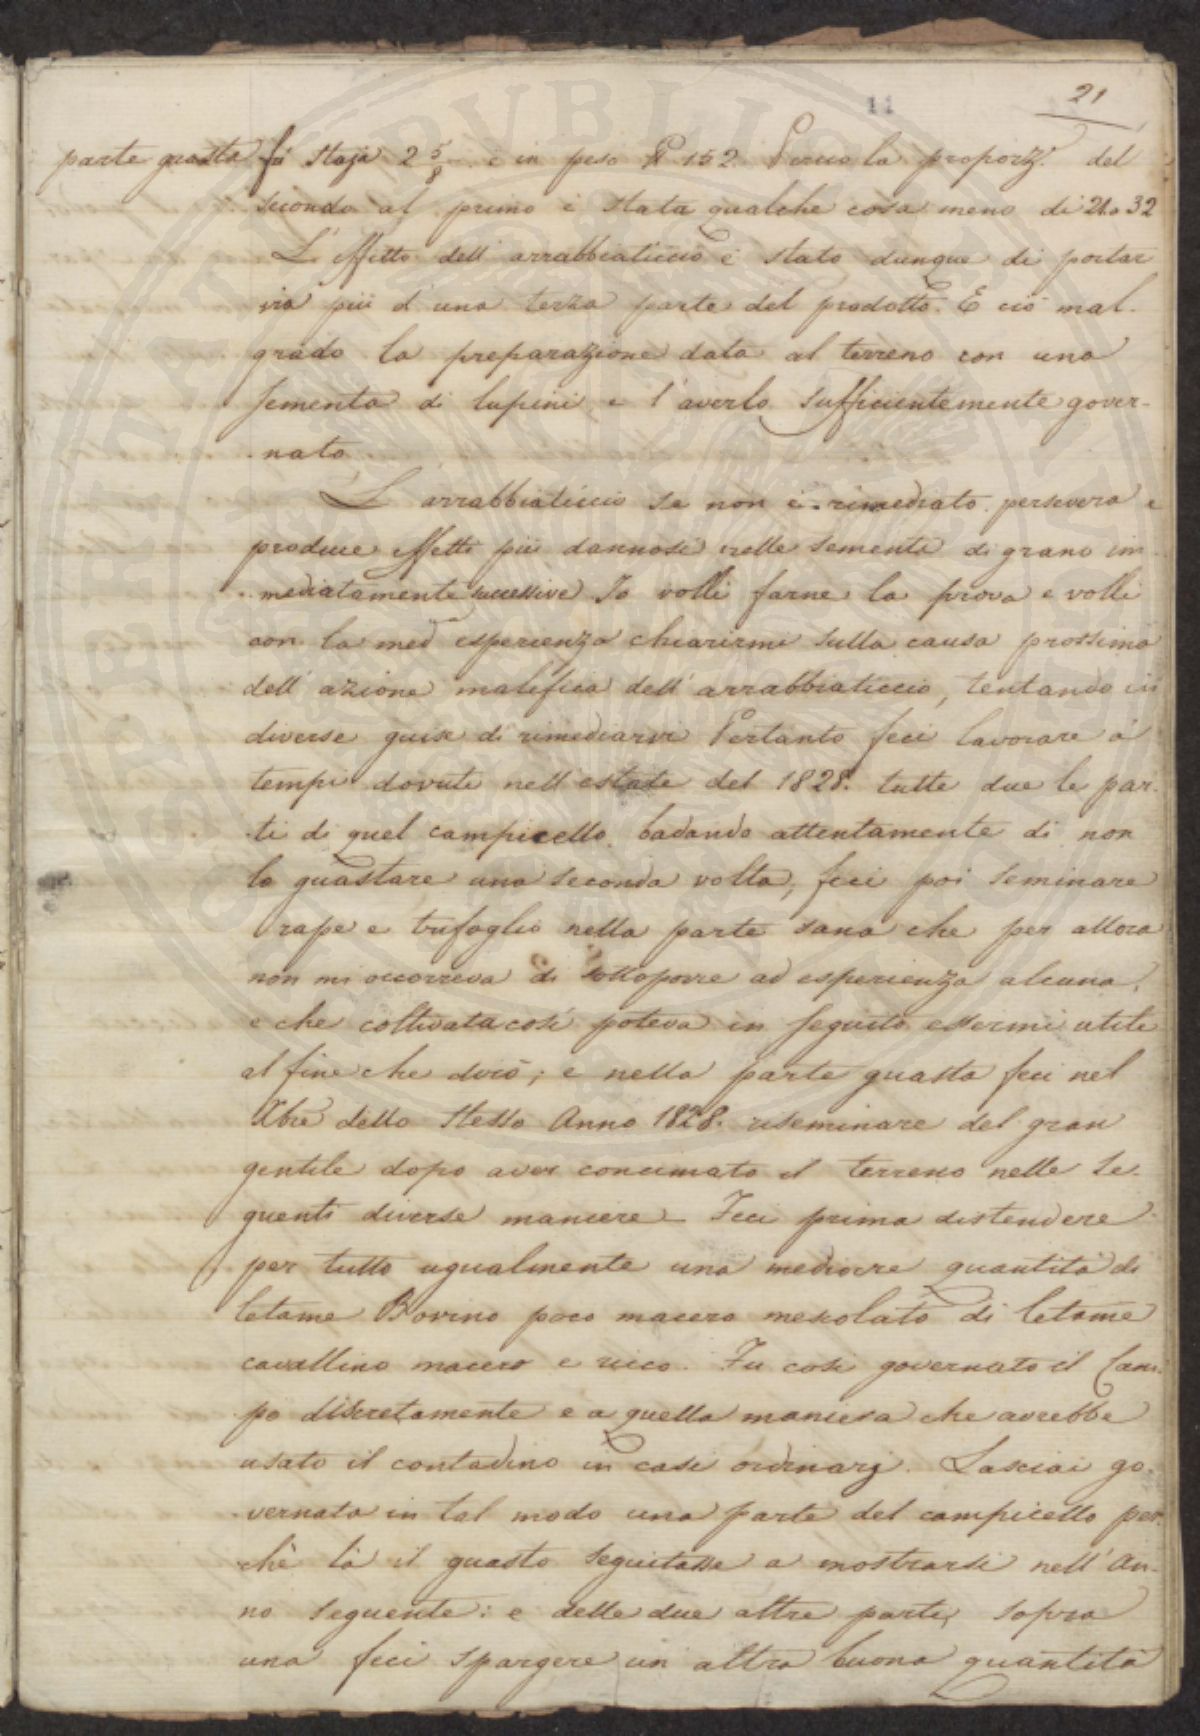 21
11
parte guasta fu Staja 2 5/8 e in peso ℔ 152. Perciò la proporz. del
secondo al primo è stata qualche cosa meno di 21 a 32
L'effetto dell'arrabbiaticcio è stato dunque di portar
via più d'una terza parte del prodotto. E ciò mal-
grado la preparazione data al terreno con una
sementa di lupini e l'averlo sufficientemente gover-
nato
L'arrabbiaticcio se non è rimediato persevera e
produce effetti più dannosi nelle sementi di grano im-
mediatamente successive Io volli farne la prova e volli
con la med esperienza chiarirmi sulla causa prossima
dell'azione malefica dell'arrabbiaticcio, tentando in
diverse guise di rimediarvi Pertanto feci lavorare a
tempi dovuti nell'estate del 1828. tutte due le par-
ti di quel campicello badando attentamente di non
lo guastare una seconda volta; feci poi seminare
rape e trifoglio nella parte sana che per allora
non mi occorreva di sottoporre ad esperienza alcuna,
e che coltivata così poteva in seguito essermi utile
al fine che dirò; e nella parte guasta feci nel
Xbre dello stesso Anno 1828. riseminare del gran
gentile dopo aver concimato il terreno nelle se-
guenti diverse maniere - Feci prima distendere
per tutto ugualmente una mediocre quantità di
letame Bovino poco macero mescolato di letame
cavallino macero e ricco. Fu così governato il Cam-
po discretamente e a quella maniera che avrebbe
usato il contadino in casi ordinarj. Lasciai go-
vernata in tal modo una parte del campicello per-
chè là il guasto seguitasse a mostrarsi nell'An-
no seguente: e delle due altre parti, sopra
una feci spargere un altra buona quantità